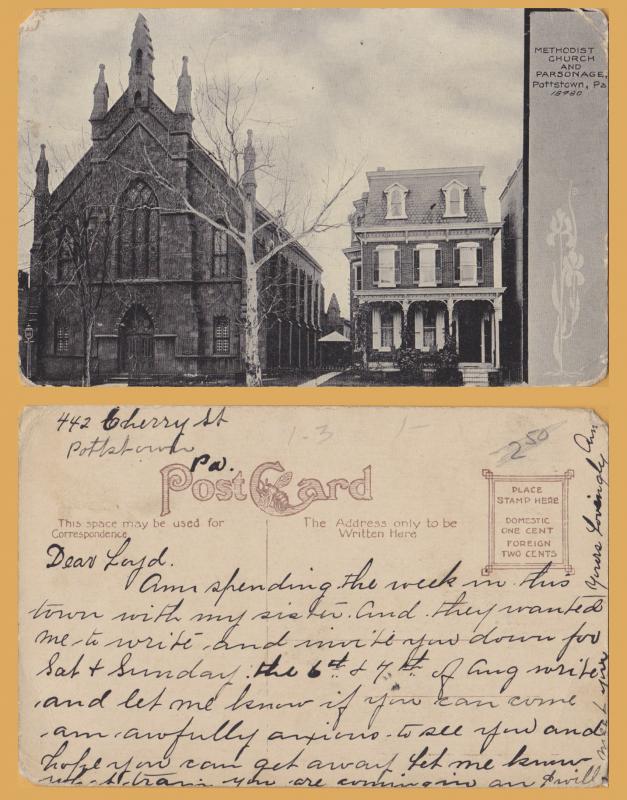 METHODIST
CHURCH
AND
PARSONAGE,
Pottstown, Pa
18980
442 Cherry St
Pottstown
Pa.
1-3
1-
2 50
Post Card
This space may be used for
Correspondence
The Address only to be
Written Here
PLACE
STAMP HERE
DOMESTIC
ONE CENT
FOREIGN
TWO CENTS
Dear Loyd.
Am spending the week in this
town with my sister. And they wanted
me to write and invite you down for
Sat + Sunday. the 6th & 7th of Aug write
and let me know if you can come
am awfully anxious to see you and
hope you can get away Let me know
what train you are coming in on & will
meet you
Yours Lovingly Ann